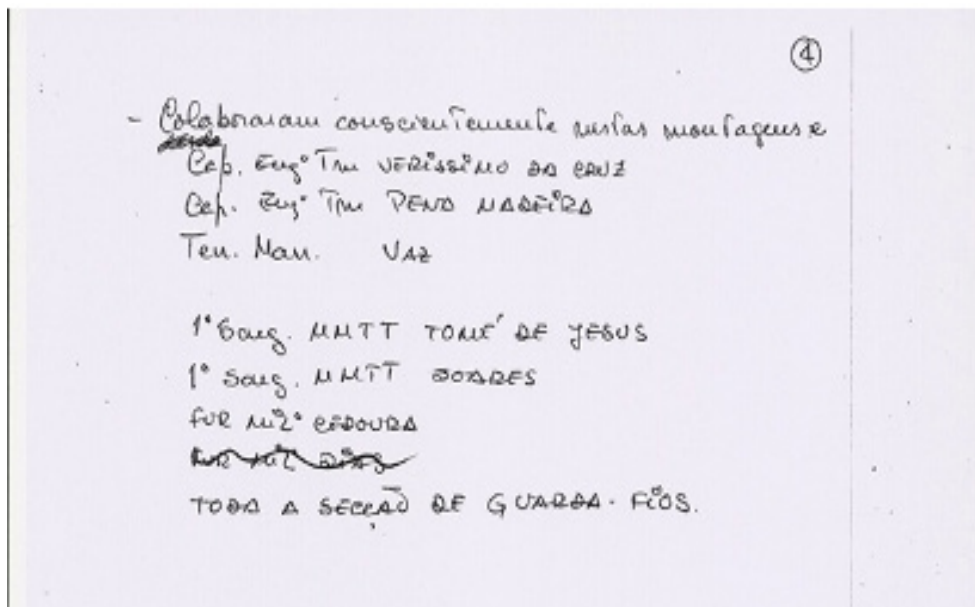 ④
- Colaboraram conscientemente nestas montagens
Cap. Engº Tm VERÍSSIMO DA CRUZ
Cap. Engº Tm PENA MADEIRA
Ten. Man. VAZ
1º Sarg. MMTT TOMÉ DE JESUS
1º Sarg. MMTT SOARES
FUR MILº CEDOURA
FUR MILº DIAS
TODA A SECÇÃO DE GUARDA-FIOS.